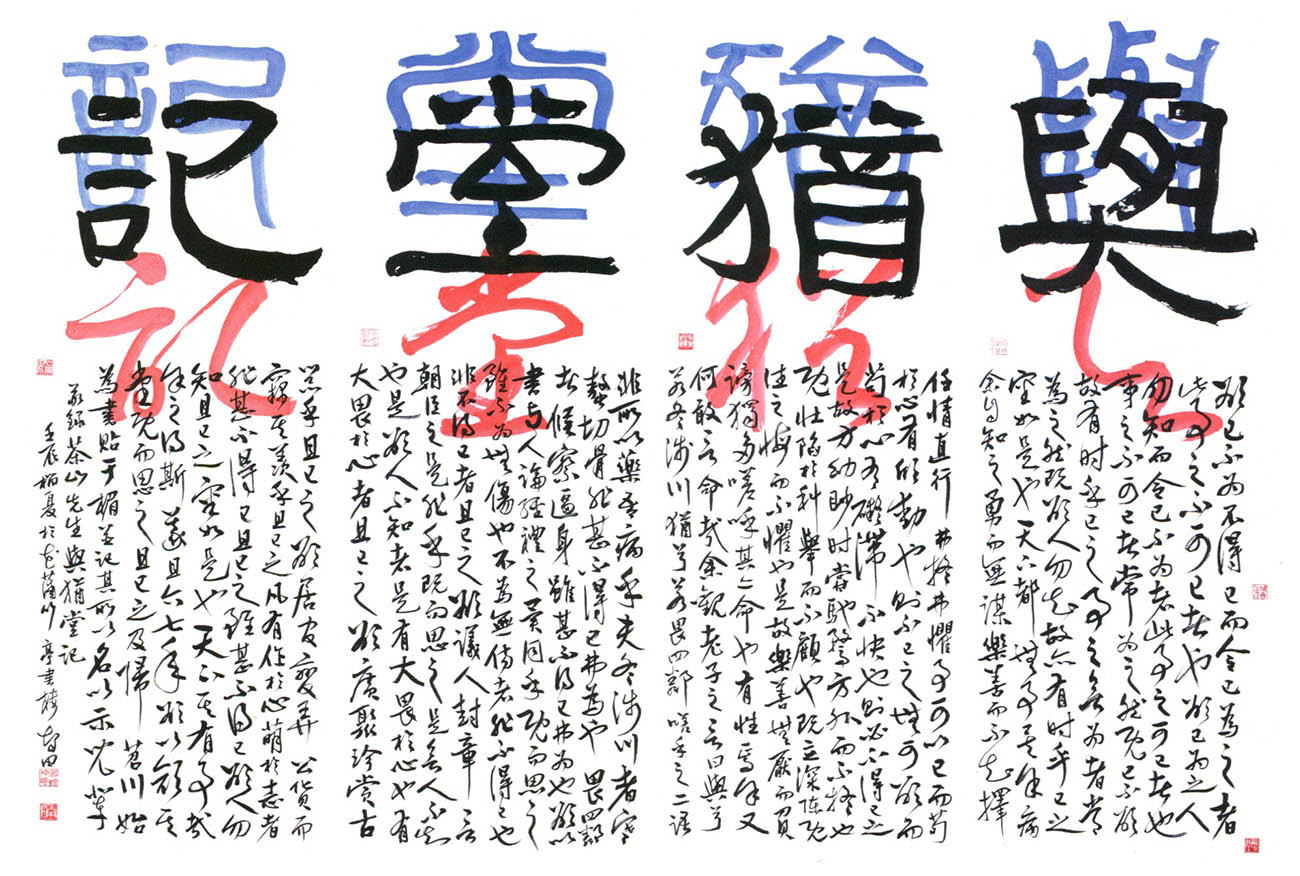 與猶堂記
欲已不為不得已而令已為之者
此事之不可已者也欲已為之人
勿知而令已不為者此事之可已者也
事之不可已者常為之然既已不欲
故有時乎已之事之欲為者常
為之然既欲人勿知故亦有時乎已之
審如是也天下都無事矣余病
余自知之勇而無謀樂善而不知擇
任情直行弗疑弗懼事可以已而苟
於心有欣動也則不已之無可欲而
苟於心有礙滯不快也則必不得已之
是故方幼眇時嘗馳騖方外而不疑也
既壯陷於科舉而不顧也既立深陳既
往之悔而不懼也是故樂善無厭而負
謗獨多嗟呼其亦命也有性焉余又
何敢言命哉余觀老子之言曰與兮
若冬涉川猶兮若畏四鄰嗟乎之二語
非所以藥吾病乎夫冬涉川者寒
螫切骨非甚不得已弗為也畏四鄰
者候察逼身雖甚不得已弗為也欲以
書與人論經禮之異同乎既而思之
雖不為無傷也不為無傷者非不得已也
非不得已者且已之欲議人封章言
朝臣之是非乎既而思之是欲人不知
也是欲人不知者是有大畏於心也有
大畏於心者且已之欲廣聚珍賞古
器乎且已之欲居官變弄公貨而
竊其羨乎且已之凡有作於心萌於志者
非甚不得已且已之雖甚不得已欲人勿
知且已之審如是也天下其有事哉
余之得斯義且六七年欲以顏其
堂既而思之且已之及歸苕川始
為書貼于楣並記其所以名以示兒輩
錄茶山先生與猶堂記
壬辰榴夏於 亭書樓